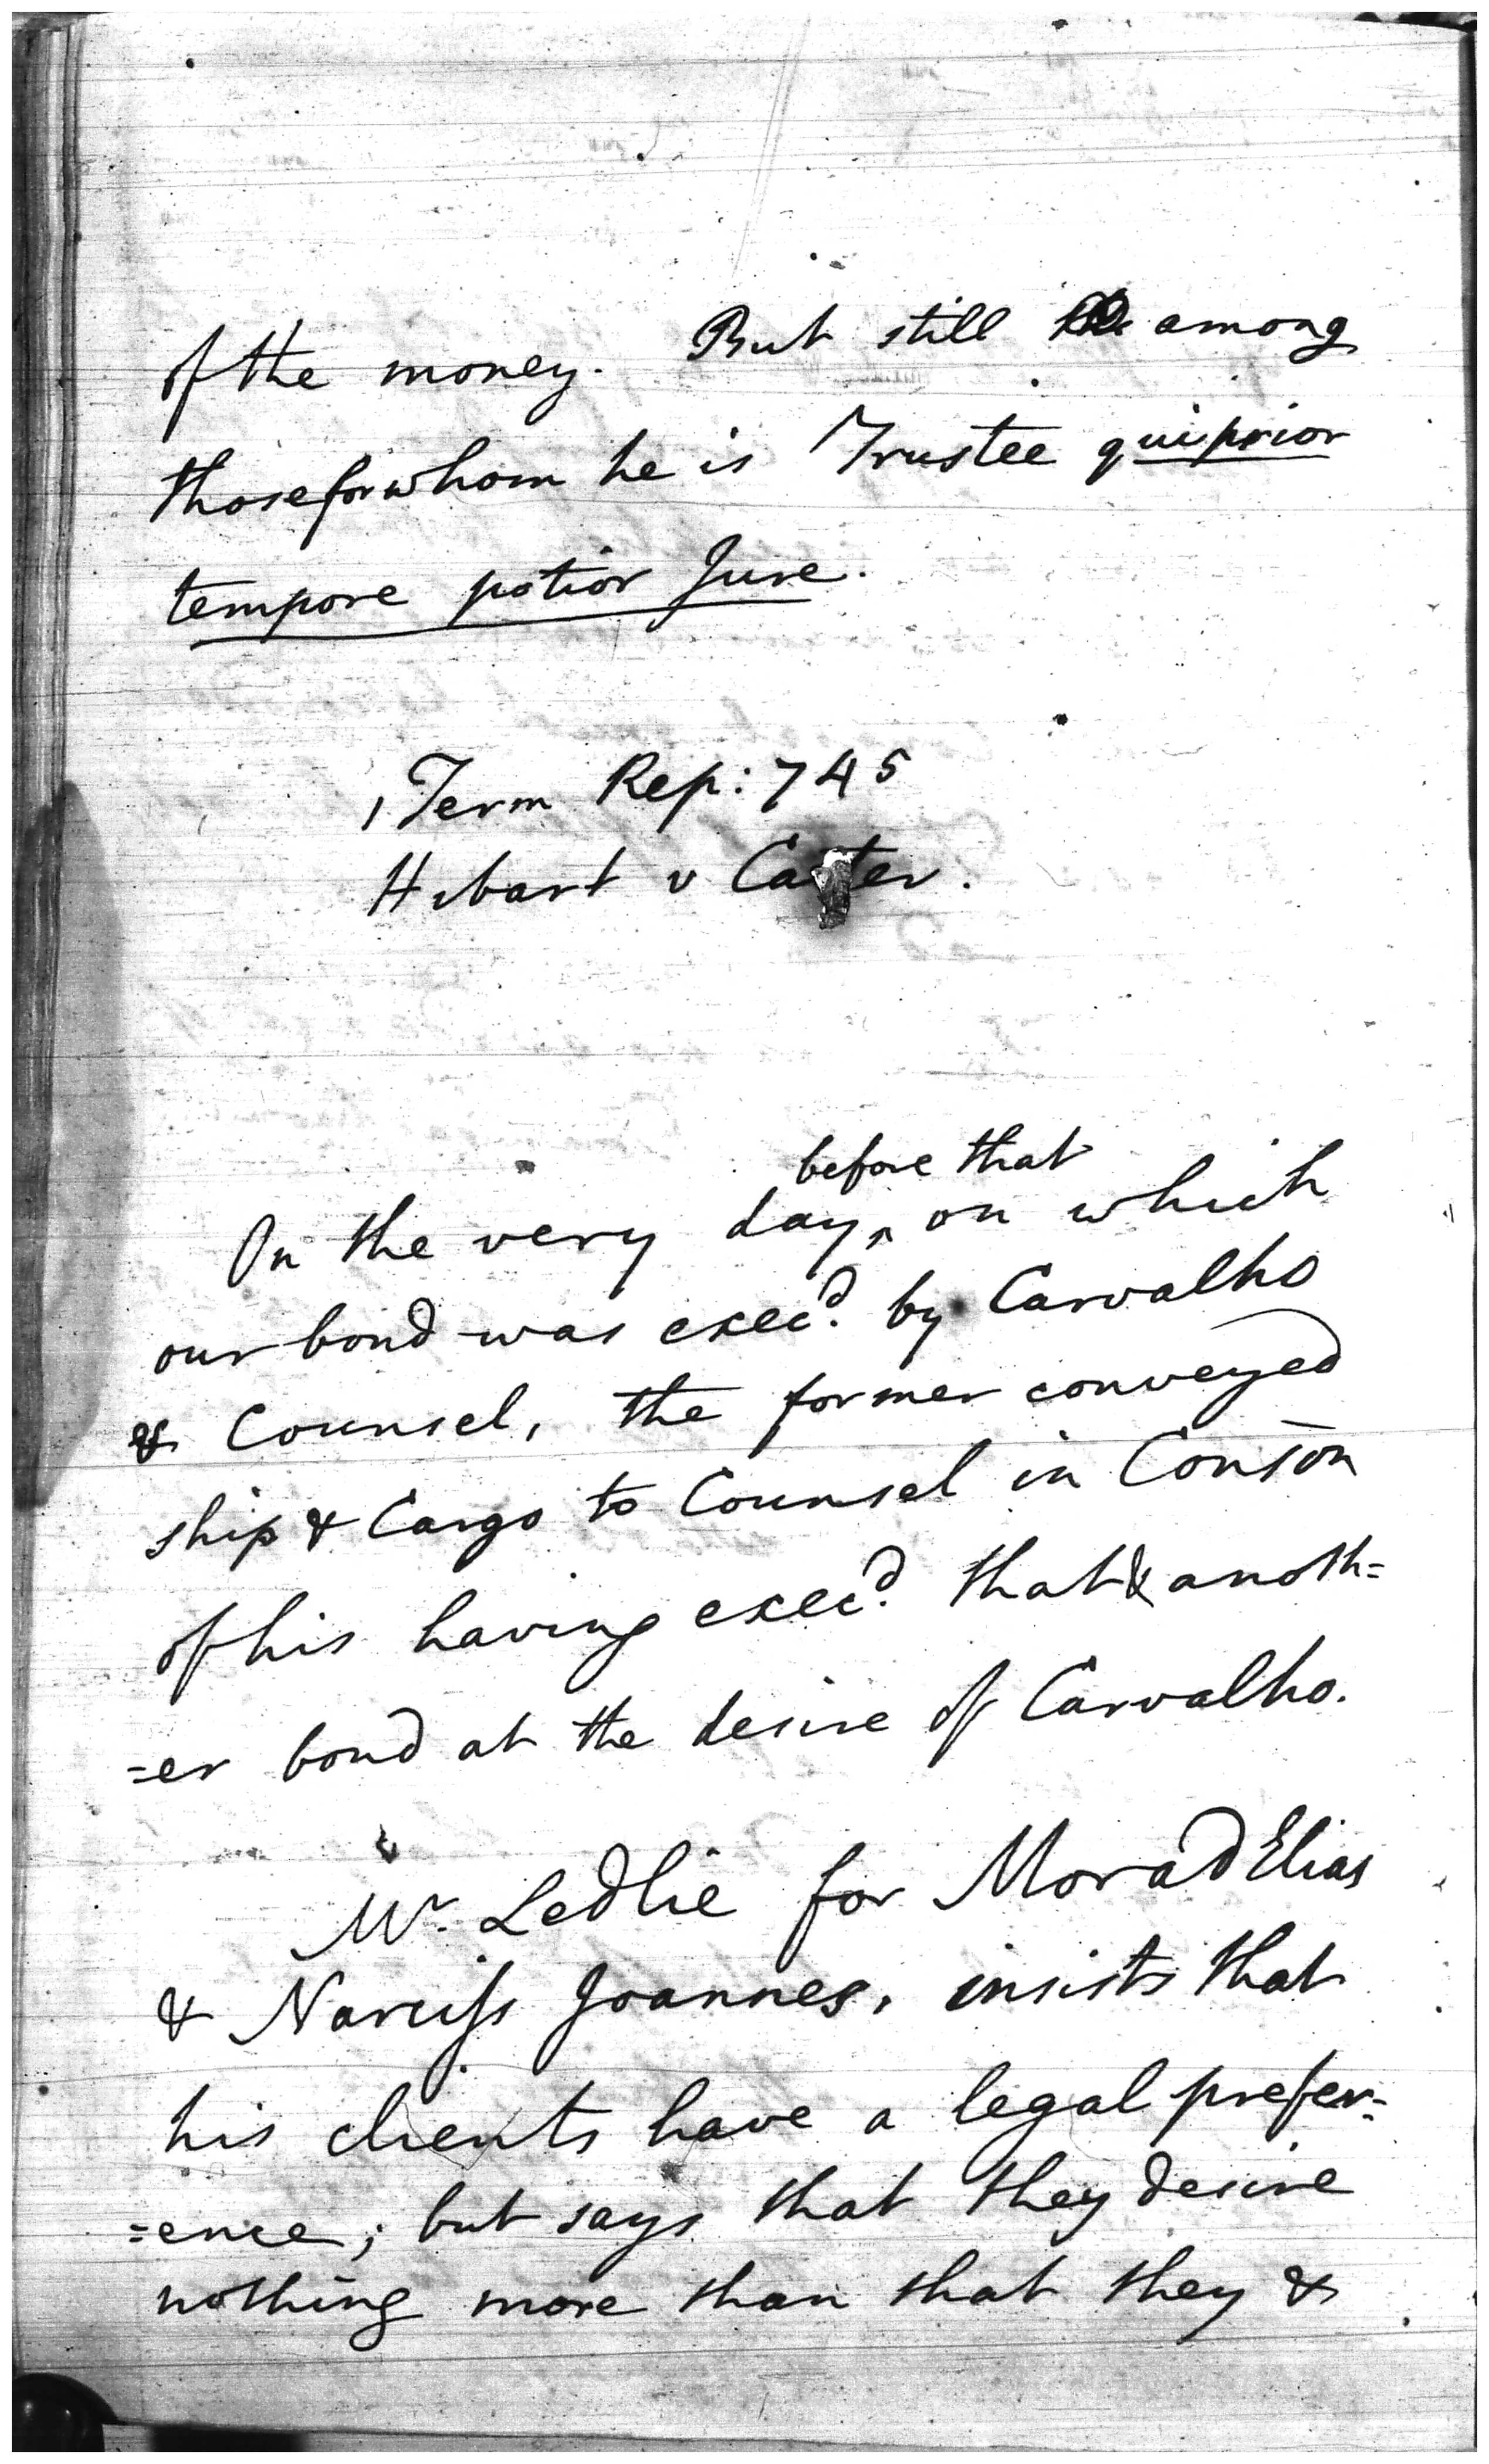 of the money. But still among
those for whom he is Trustee qui prior
tempore potior Jure.
1 Term Rep: 745
Hibart v Carter.
before that
On the very day ^ on which
our bond was exec.d by Carvalho
& Counsel, the former conveyed
ship & Cargo to Counsel in Conson
of his having exec.d that & anoth=
=er bond at the desire of Carvalho.
Mr. Ledlie for Morad Elias
& Narciss Joannes, insists that
his clients have a legal prefer=
=ence; but says that they desire
nothing more than that they &